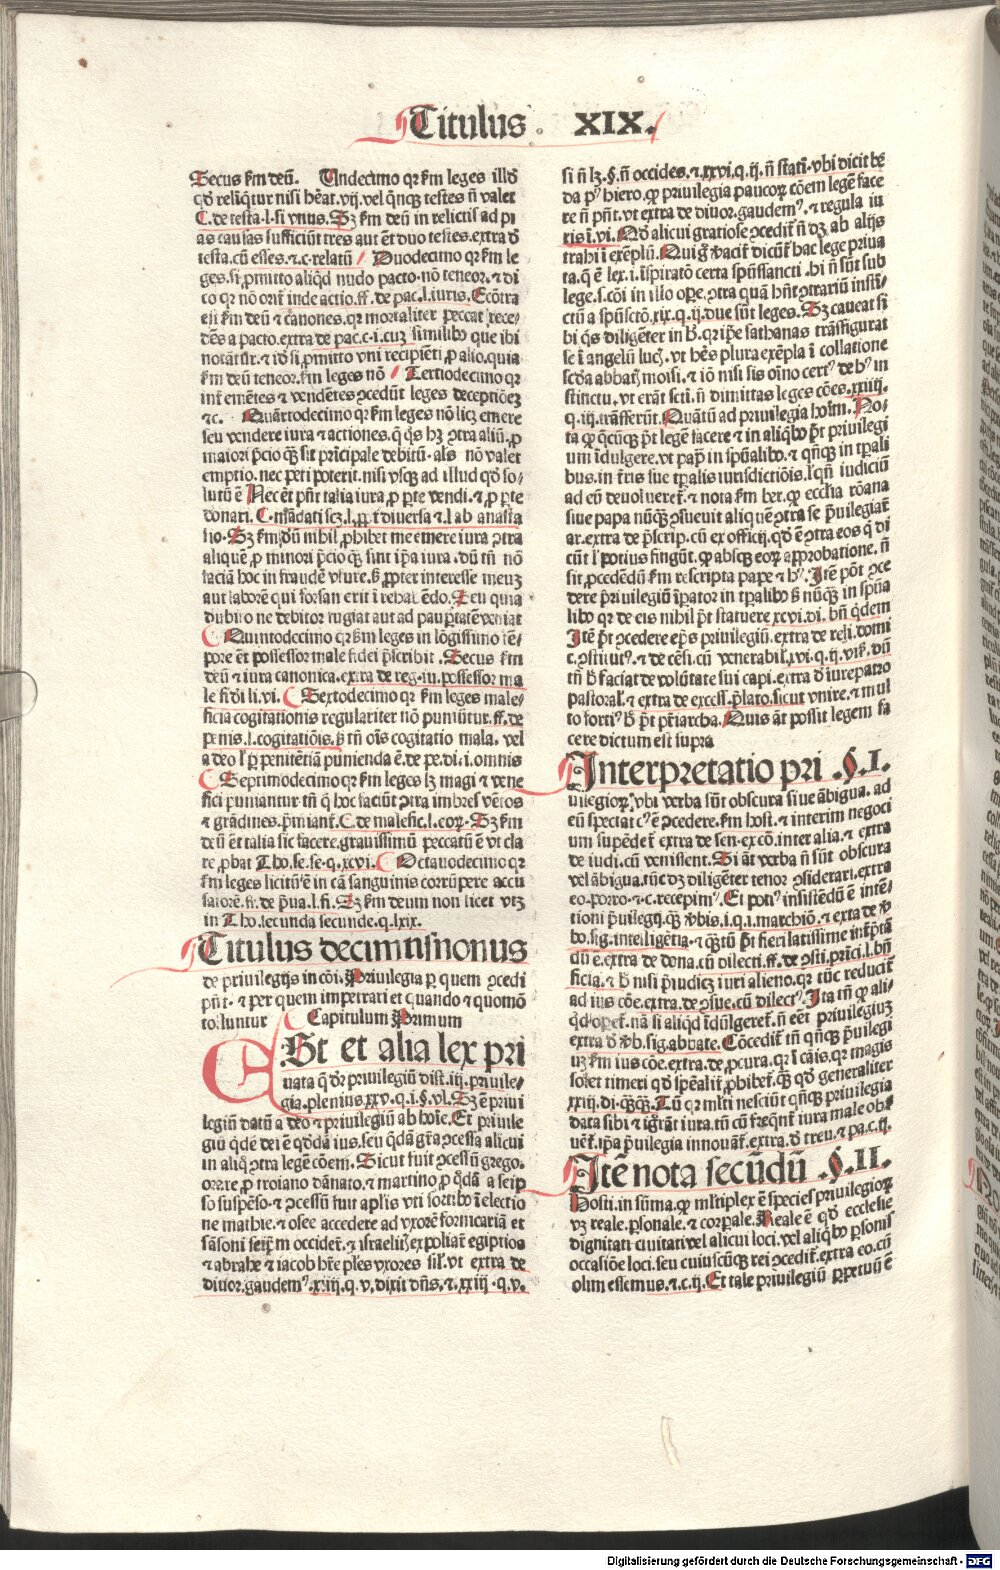 Titulus XIX.
Secus ẜm deū. Undecimo qꝛ ẜm leges illđ
qđ reliq̄tur nisi hēat .vij. vel qnꝫ testes nō valet
C. de testa. l. si vnus. Sꝫ ẜm deū in relictis ad pi
as causas sufficiūt tres aut ēt duo testes. extra đ
testa. cū esses. ⁊ c. relatū Duodecimo qꝛ ẜm le
ges. si ꝓmitto aliqđ nudo pacto. nō teneor. ⁊ di
co qꝛ nō orit̄ inde actio. ff. de pac. l. iuris. Ecōtra
est ẜm deū ⁊ canones. qꝛ mortaliter peccat rece⸗
dēs a pacto. extra de pac. c. i. cuꝫ similibꝰ que ibi
notātur. ⁊ idō si ꝓmitto vni recipiēti ꝓ alio. quia
ẜm deū teneor. ẜm leges nō Tertiodecimo qꝛ
int̄ emētes ⁊ vendētes ꝯcedūt leges deceptiōeꝫ
⁊c. Quartodecimo qꝛ ẜm leges nō licꝫ emere
seu vendere iura ⁊ actiones. q̄ qs hꝫ ꝯtra aliū. ꝓ
maiori p̄cio qꝫ sit prīcipale debitū. als nō valet
emptio. nec peti poterit. nisi vsqꝫ ad illud qđ so⸗
lutū ē Nec ēt pn̄t talia iura ꝓ pte vendi. ⁊ ꝓ pte
donari.
Sꝫ ẜm deū nihil ꝓhibet me emere iura ꝯtra
aliquē ꝓ minori p̄cio qꝫ sint ip̄a iura. dū tn̄ nō
faciā hoc in fraudē vsure. sꝫ ꝓpter interesse meuꝫ
aut laborē qui forsan erit
dubito ne debitor fugiat aut ad paup̄tatē veniat
Quintodecimo qꝛ ẜm leges in lōgissimo tē⸗
pore ēt possessor male fidei p̄scribit. Secus ẜm
deū ⁊ iura canonica. extra de reg. iu. possessor ma
le fidei li. vi. Sextodecimo qꝛ ẜm leges male⸗
ficia cogitationis regulariter nō puniūtur. ff. de
penis. l. cogitatiōis. sꝫ tn̄ oīs cogitatio mala. vel
a deo ł ꝑ penitētiā punienda ē. de pe. di. i. omnis
Septimodecimo qꝛ ẜm leges lꝫ magi ⁊ vene
fici puniantur tn̄ q̄ hoc faciūt ꝯtra imbres vētos
⁊ grādines. p̄miant̄. C. de malefic. l. eoꝝ. Sꝫ ẜm
deū ēt talia sic facere. grauissimū peccatū ē vt cla
re ꝓbat Tho. se. se. q. xcvi. Octauodecimo qꝛ
ẜm leges licitū ē in cā sanguinis corrūpere accu
satorē. ff. de p̄ua. l. fi. Sꝫ ẜm deum non licet vtꝫ
in Tho. secunda secunde. q. lxix.
Titulus decimusnonus
de priuilegijs in cōi. Priuilegia ꝑ quem ꝯcedi
pn̄t. ⁊ per quem impetrari et quando ⁊ quomō
tolluntur Capitulum Primum
Est et alia lex pri
uata q̄ dr̄ priuilegiū dist. iij. priuile⸗
gia. plenius xxv. q. i. §. vl. Sꝫ ē priui
legiū datū a deo ⁊ priuilegiū ab hoīe. Et priuile
giū qđē dei ē qđdā ius. seu qđā gr̄a ꝯcessa alicui
in aliq̄ ꝯtra legē cōem. Sicut fuit ꝯcessū grego.
orare ꝓ troiano dānato. ⁊ martino ꝓ qđā a seip
so suspēso. ⁊ ꝯcessū fuit apl̄is vti sortibꝰ ī electio
ne mathie. ⁊ osee accedere ad vxorē fornicariā et
sāsoni seip̄m occidēt. ⁊ israelit̄ expoliāt egiptios
⁊ abrahe ⁊ iacob hr̄e pl̄es vxores sil̄. vt extra de
diuor. gaudemꝰ. xxiij. q. v. dixit dn̄s. ⁊ xxiij. q. v.
si nō lꝫ. §. n̄ occides. ⁊ xxvi. q. ij. n̄ statī. vbi dicit be
da pꝰ hiero. ꝙ priuilegia paucoꝝ cōem legē face
re n̄ pn̄t. vt extra de diuor. gaudemꝰ. ⁊ regula iu
ris ī. vi. Nō alicui gratiose ꝯcedit̄ n̄ dꝫ ab alijs
trahi ī exēplū.
ta. q̄ ē lex. i. īspiratō certa spūssancti.
lege. s. cōi in illo ope. ꝯtra quā hn̄t ꝯtrariū insti⸗
ctū a spūsctō. xix. q. ij. due sūt leges. Sꝫ caueat si
bi qs diligēter in hꝰ. qꝛ ip̄e sathanas trāsfigurat
se ī angelū lucꝭ. vt hēs plura exēpla ī collatione
scđa abbatꝭ moisi. ⁊ iō nisi sis oīno certꝰ de hꝰ in
stinctu, vt erāt sctī. n̄ dimittas leges cōes. xxiiij.
q. iij. trāsferūt. Quātū ad priuilegia hoīm. No⸗
ta ꝙ qcūqꝫ p̄t legē facere ⁊ in aliqbꝰ p̄t priuilegi
um īdulgere. vt papa in spūalibꝰ. ⁊ qnqꝫ in tpali
bus. in t̄ris sue tpalis iurisdictiōis.
ad eū deuoluereť. ⁊ nota ẜm ber. ꝙ ecclīa rōana
siue papa nūqꝫ ꝯsueuit aliquē ꝯtra se p̄uilegiar̄
ar. extra de p̄scrip. cū ex officij. qđ ē ꝯtra eos q̄ di
cūt ł potius fingūt. ꝙ absqꝫ eoꝝ approbatione. n̄
sit ꝓcedēdū ẜm rescripta pape ⁊ hꝰ. Itē pōt ꝯce
dere p̄uilegiū īpator in tpalibꝰ sꝫ nūqꝫ in spūa
libꝰ qꝛ de eis nihil p̄t statuere xcvi. di. bn̄ qdem
Itē p̄t ꝯcedere ep̄s priuilegiū. extra de reli. domi
c. ꝯstitutꝰ. ⁊ de cēsi. cū venerabil̄.
tn̄ hꝰ faciat de volūtate sui capi. extra đ iurepatro
pastoral̄. ⁊ extra de excess. p̄lato. sicut vnire. ⁊ mul
to fortiꝰ hꝰ p̄t pr̄iarcha. Quis āt possit legem fa
cere dictum est supra
Interpretatio pri §. I.
uilegioꝝ. vbi verba sūt obscura siue ābigua. ad
eū spectat cuiꝰ ē ꝯcedere. ẜm host. ⁊ interim negoci
um supēdet̄. extra de sen. exco. inter alia. ⁊ extra
de iudi. cū venissent. Si āt verba n̄ sūt obscura
vel ābigua. tūc dꝫ diligēter tenor ꝯsiderari. extra
eo. porro. ⁊ c. recepimꝰ. Et potiꝰ insistēdū ē intē⸗
tioni p̄uilegij. qꝫ verbis. i. q. i. marchiō. ⁊ extra de v̄
bo. sig. intelligētia. ⁊ qꝫtū p̄t fieri latissime int̄p̄tā
dū ē. extra de dona. cū dilecti. ff. de ꝯsti. prīci. l. bn̄
ficia. ⁊ hꝰ nisi p̄iudicꝫ iuri alieno. qꝛ tūc reducit̄
ad ius cōe. extra. de ꝯsue. cū dilectꝰ. Ita tn̄ ꝙ ali⸗
qđ opet̄. nā si aliqđ īdūlgeret̄. n̄ eēt priuilegiuꝫ
extra đ v̄b. sig. abbate. Cōcedit̄ tn̄ qnqꝫ p̄uilegi
uꝫ ẜm ius cōe. extra. de ꝓcura. qꝛ ī cāis. qꝛ magis
solet timeri qđ spēalit̄ ꝓhibet̄. qꝫ qđ generaliter
xxiij. di. qꝫqꝫ. Tū qꝛ ml̄ti nesciūt qnqꝫ priuilegia
data sibi ⁊ igr̄ant iura. tū cū freqn̄t̄ iura male obẜ⸗
uēt̄. ip̄a p̄uilegia innouāt̄. extra. đ treu. ⁊ pa. c. ij.
Itē nota secūdū §. II.
Hosti. in sūma. ꝙ ml̄tiplex ē species priuilegioꝝ
vꝫ reale. ꝑsonale. ⁊ corpale. Reale ē qđ ecclesie
dignitati ciuitati vel alicui loci. vel aliqbꝰ ꝑsonis
occasiōe loci. seu cuiuscūqꝫ rei ꝯcedit̄. extra eo. cū
olim essemus. ⁊ c. ij. Et tale priuilegiū ꝑpetuū ē
Digitalisierung gefördert durch die Deutsche Forschungsgemeinschaft - DFG